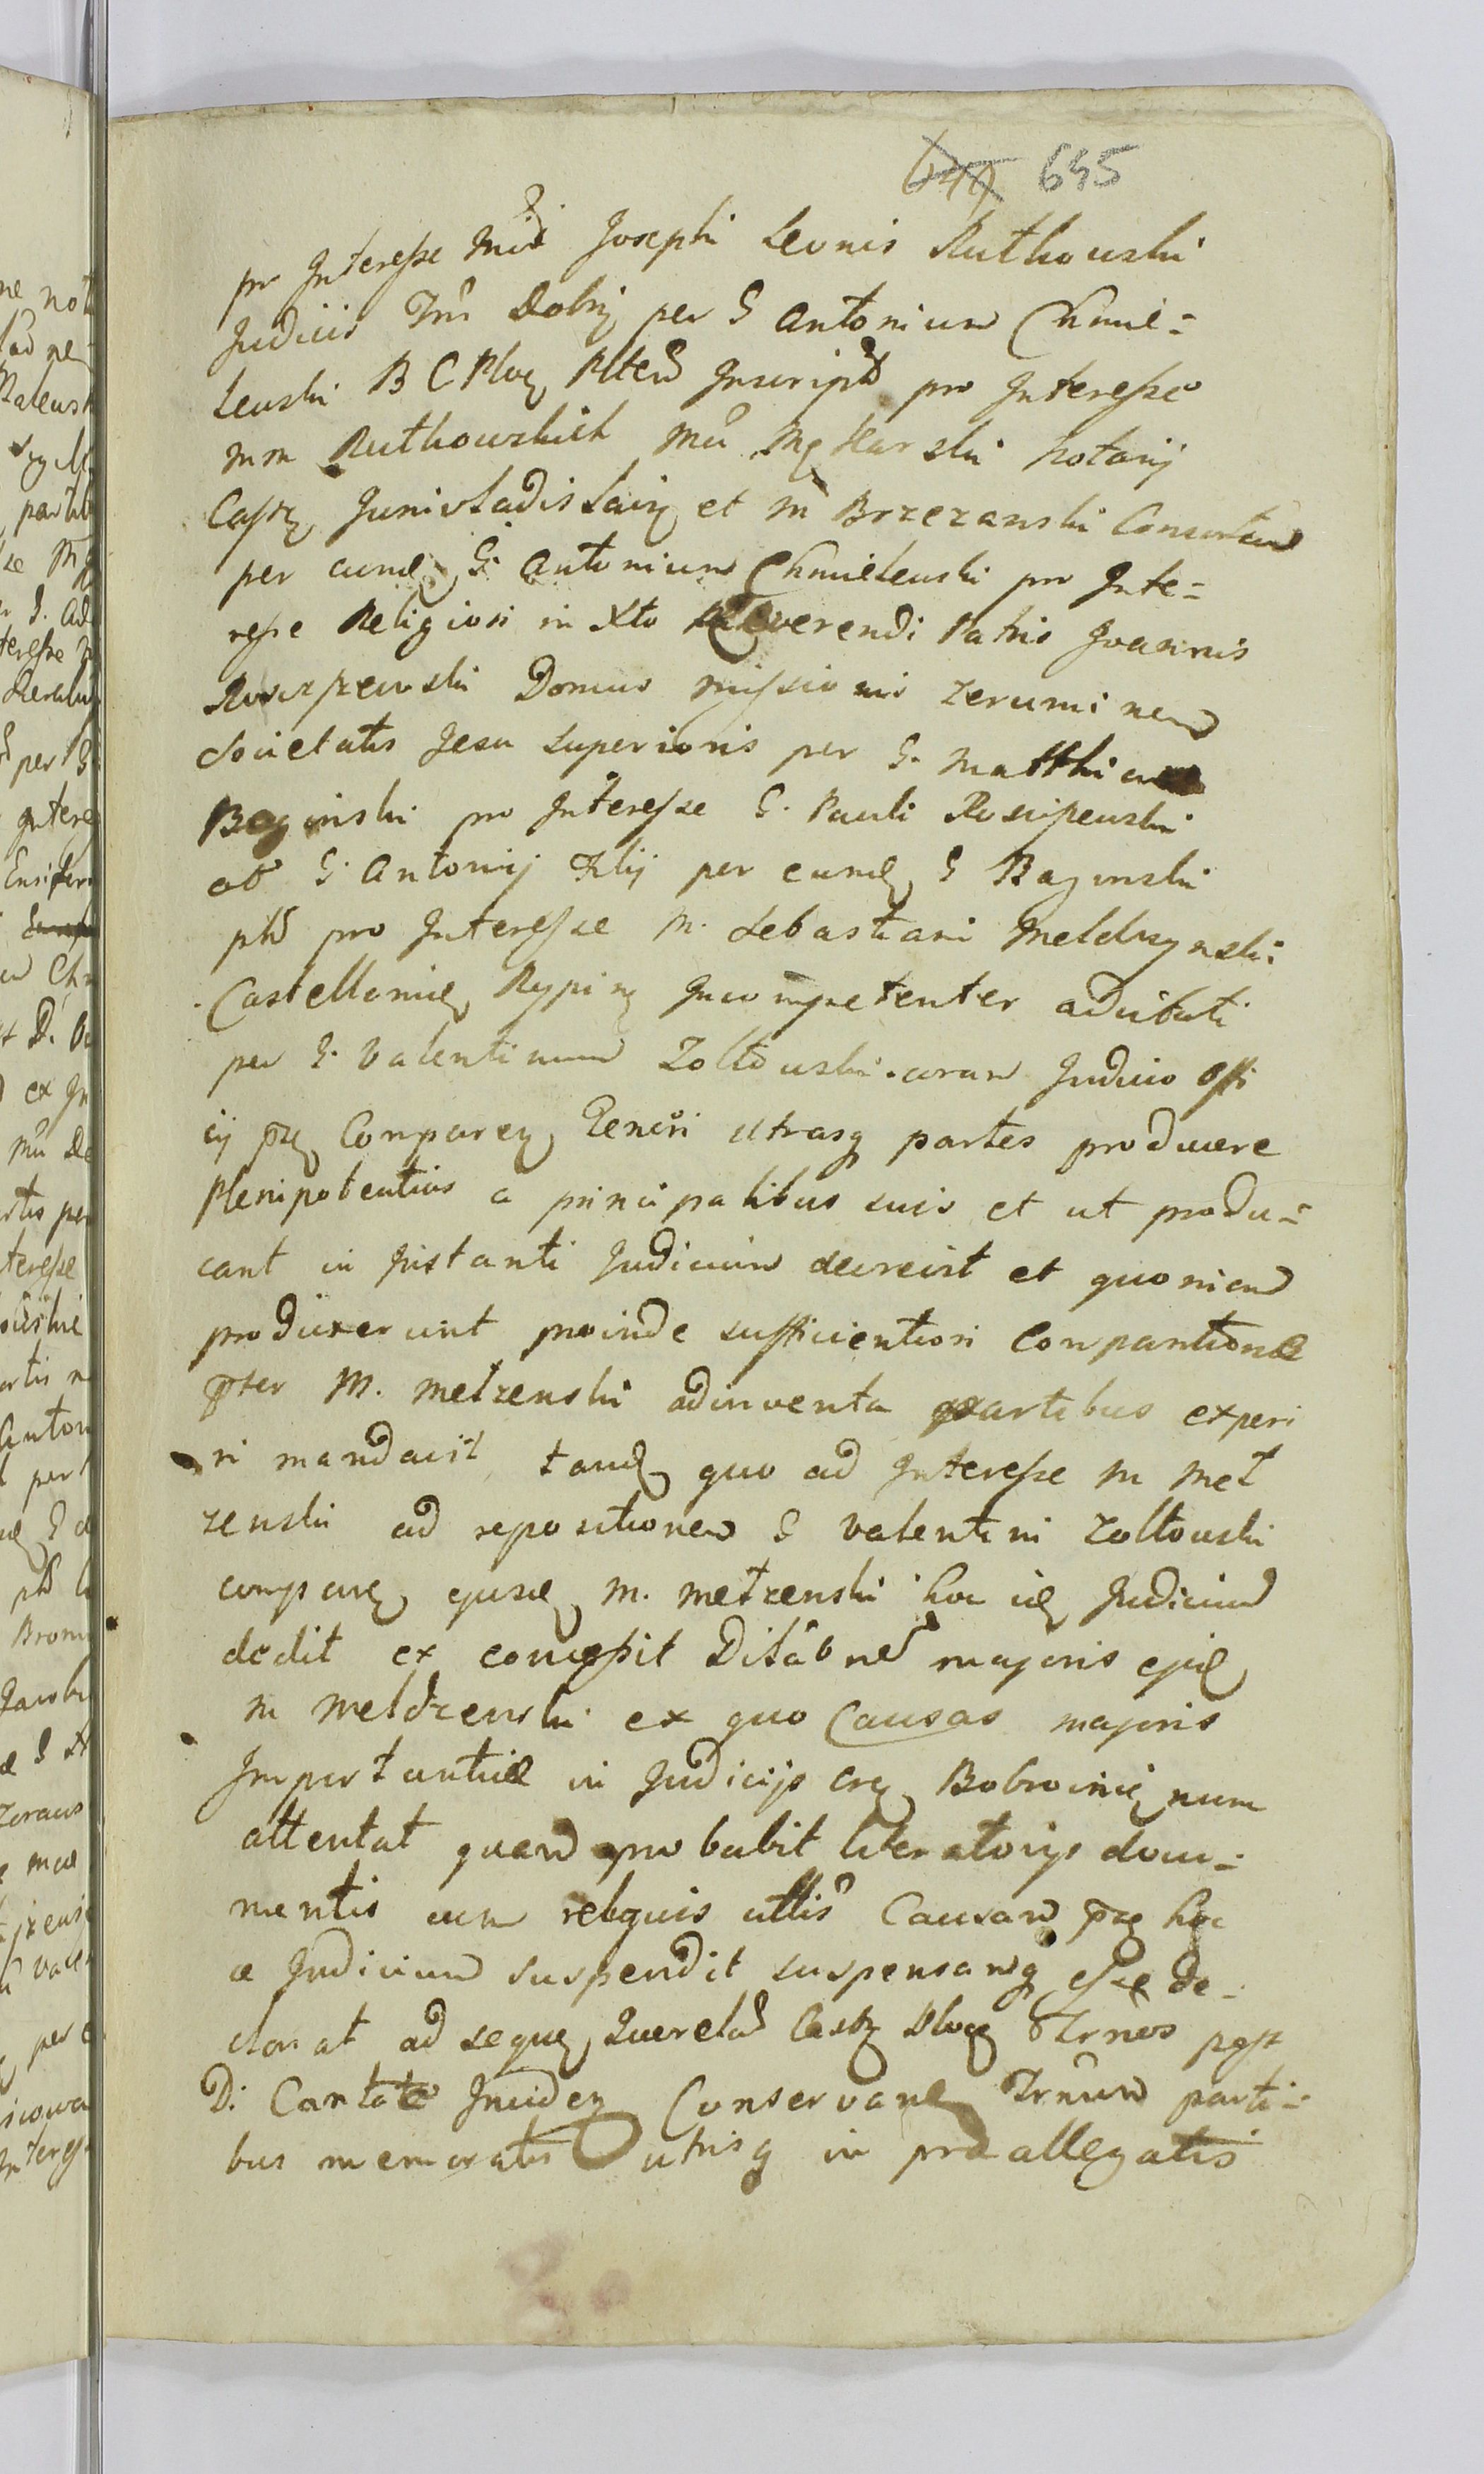 645
pro Interesse Mfci Josephi Leonis Rutkowski
Judicis Trris Dobrz per G Antonium Chmie=
lewski B C Ploc Pltem Inscript pro Interesse
mm Rutkowskich mci Mętkarski Notarij
Castr Junivladislavien et m Brzezanski Consortum
per eund G. Antonium Chmielewski pro Inte=
resse Religiosi in Xto Reverendi Patris Joannis
Rosczpewski Domus Missionis Zeruminen
Societatis Jesu Superioris per G. Matthiam
Baginski pro Interesse G. Pauli Rosciszewski
ac G. Antonij filij per eund G Baginski
pltem pro Interesse M. Sebastiani Meldzynski
Castellanid Rypin Incompetenter adcitati
per G. Valentinum Zoltowski coram Judicio Offi
cij prz Comparen Teneri utrasq partes producere
Plenipotentias a principalibus suis et ut produ=
cant in Instanti Judicium decrevit et quoniam
produxerunt proinde sufficientiori Comparitione
pter M. Metzenski adinventa partibus experi
ri mandavit, tand quo ad Interesse M Met
zenski ad repositionem G Valentini Zoltowski
comparen ejusd M. Metzenski hoc id Judicium
dedit et concessit Dilaonem majoris ejusd
M Meldzenski ex quo Causas majoris
Importantiae in Judicijs Crz Bobrownic nunc
attentat quam probabit literatorijs docu=
mentis cum reliquis uttis Causam prz hoc
ce Judicium suspendit suspensamq esse de=
clarat ad sequen Querelar Castr Ploc Trnos post
D. Cantate Inciden Conservand Trnum parti=
bus memoratis utrisq in praeallegatis